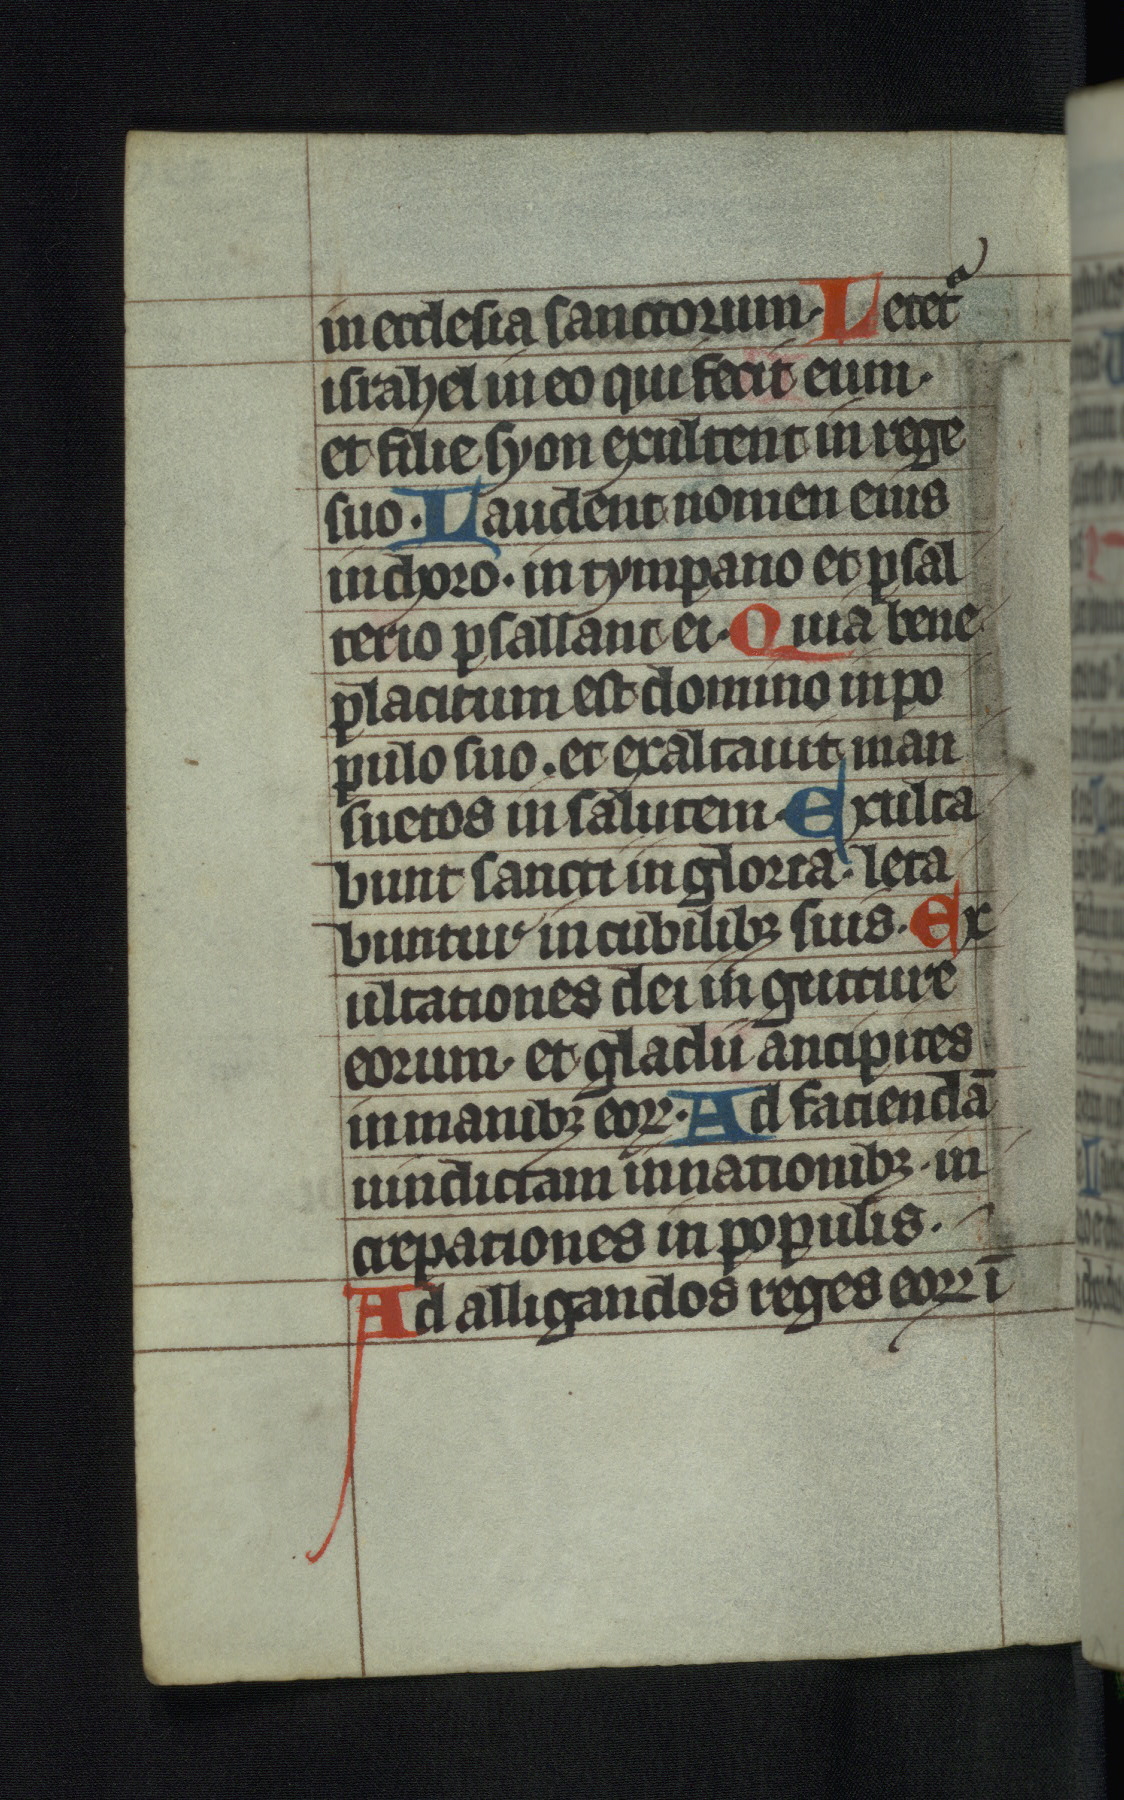 in ecclesia sanctorum. Letetᵃ
israhel in eo qui fecit eum.
et filie syon exultent in rege
suo. Laudent nomen eius
in choro. in tympano et psal
terio psallant ei. Quia bene
placitum est domino in po
pulo suo. et exaltauit man
suetos in salutem. Exulta
bunt sancti in gloria. leta
buntur in cubilibꝫ suis. Ex
ultationes dei in gutture
eorum. et gladii ancipites
in manibꝫ eoꝝ. Ad faciendā
uindictam in nationibꝫ. in
crepationes in populis.
Ad alligandos reges eoꝝ ī